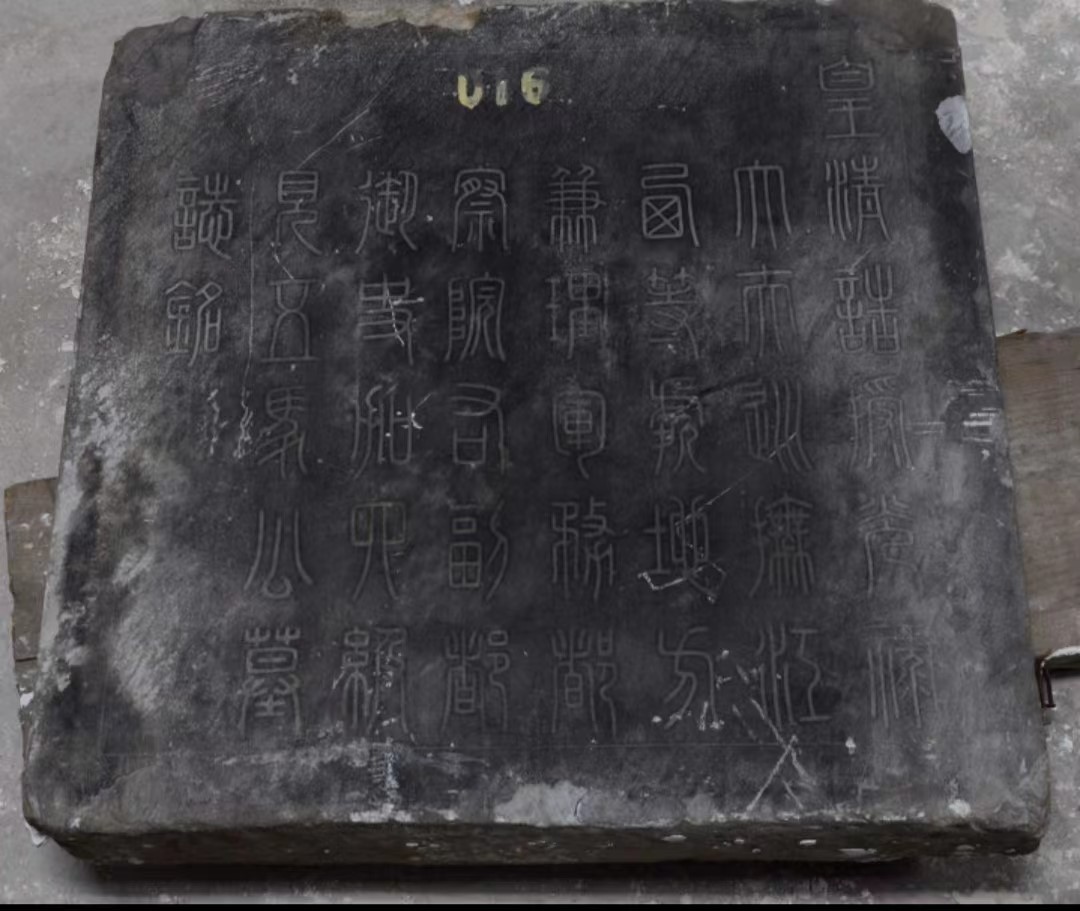 016
皇清誥授光祿
大夫巡撫江
西等處地方
兼理軍務都
察院右副都
御史加四級
見五馬公墓
誌銘